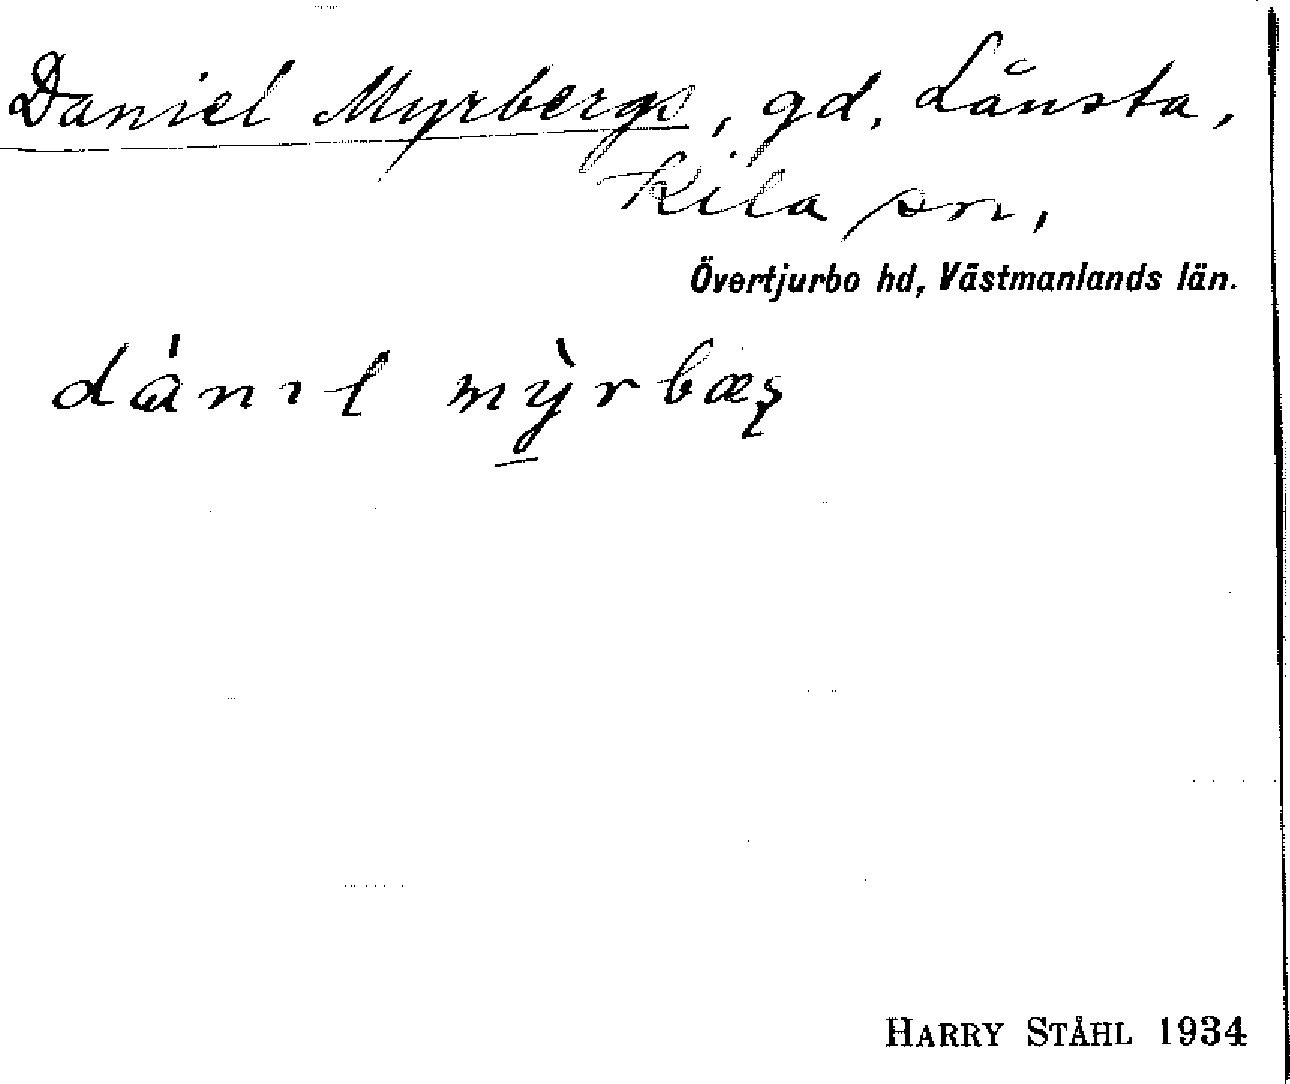 Daniel Myrbergs, gd, Lånsta,
Kila sn,
Övertjurbo hd, Västmanlands län.
dánıl mỳrbæş
HARRY STÅHL 1934